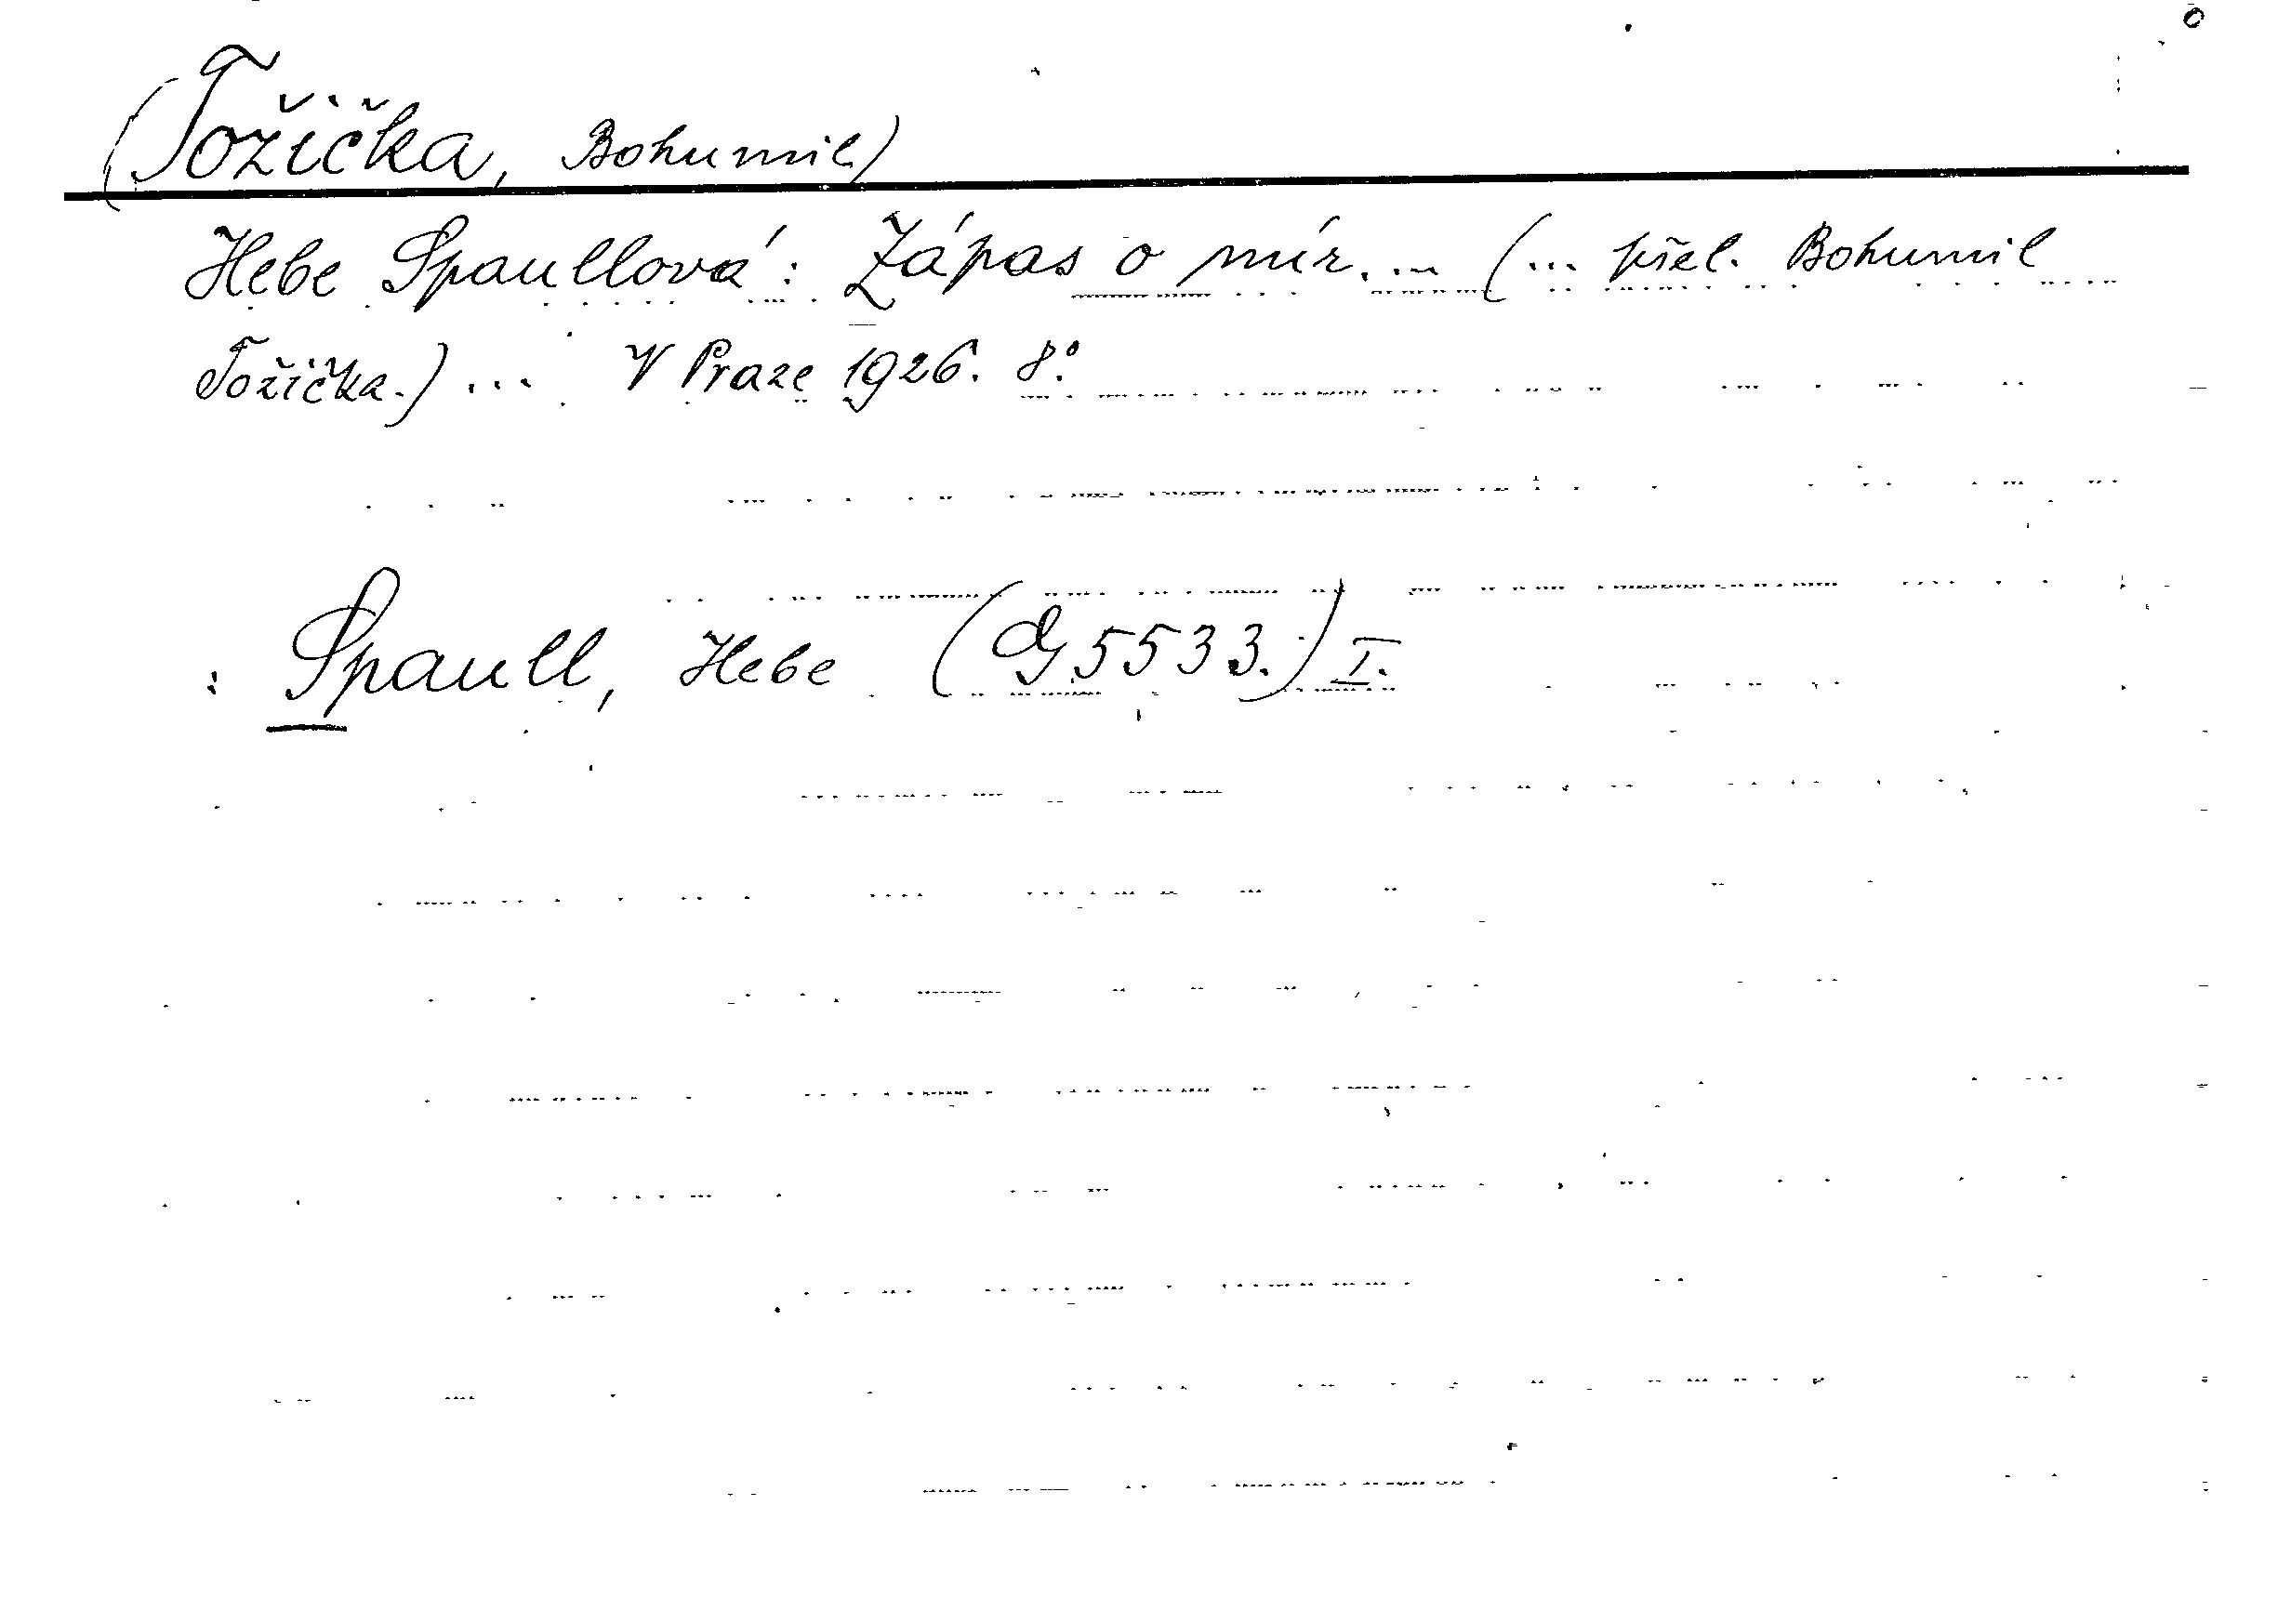 (Tožička, Bohumil)
Hebe Spaullová: Zápas o mír. ... (... přel. Bohumil
Tožička.) ... V Praze 1926. 8°.
: Spaull, Hebe (G 5533.) I.